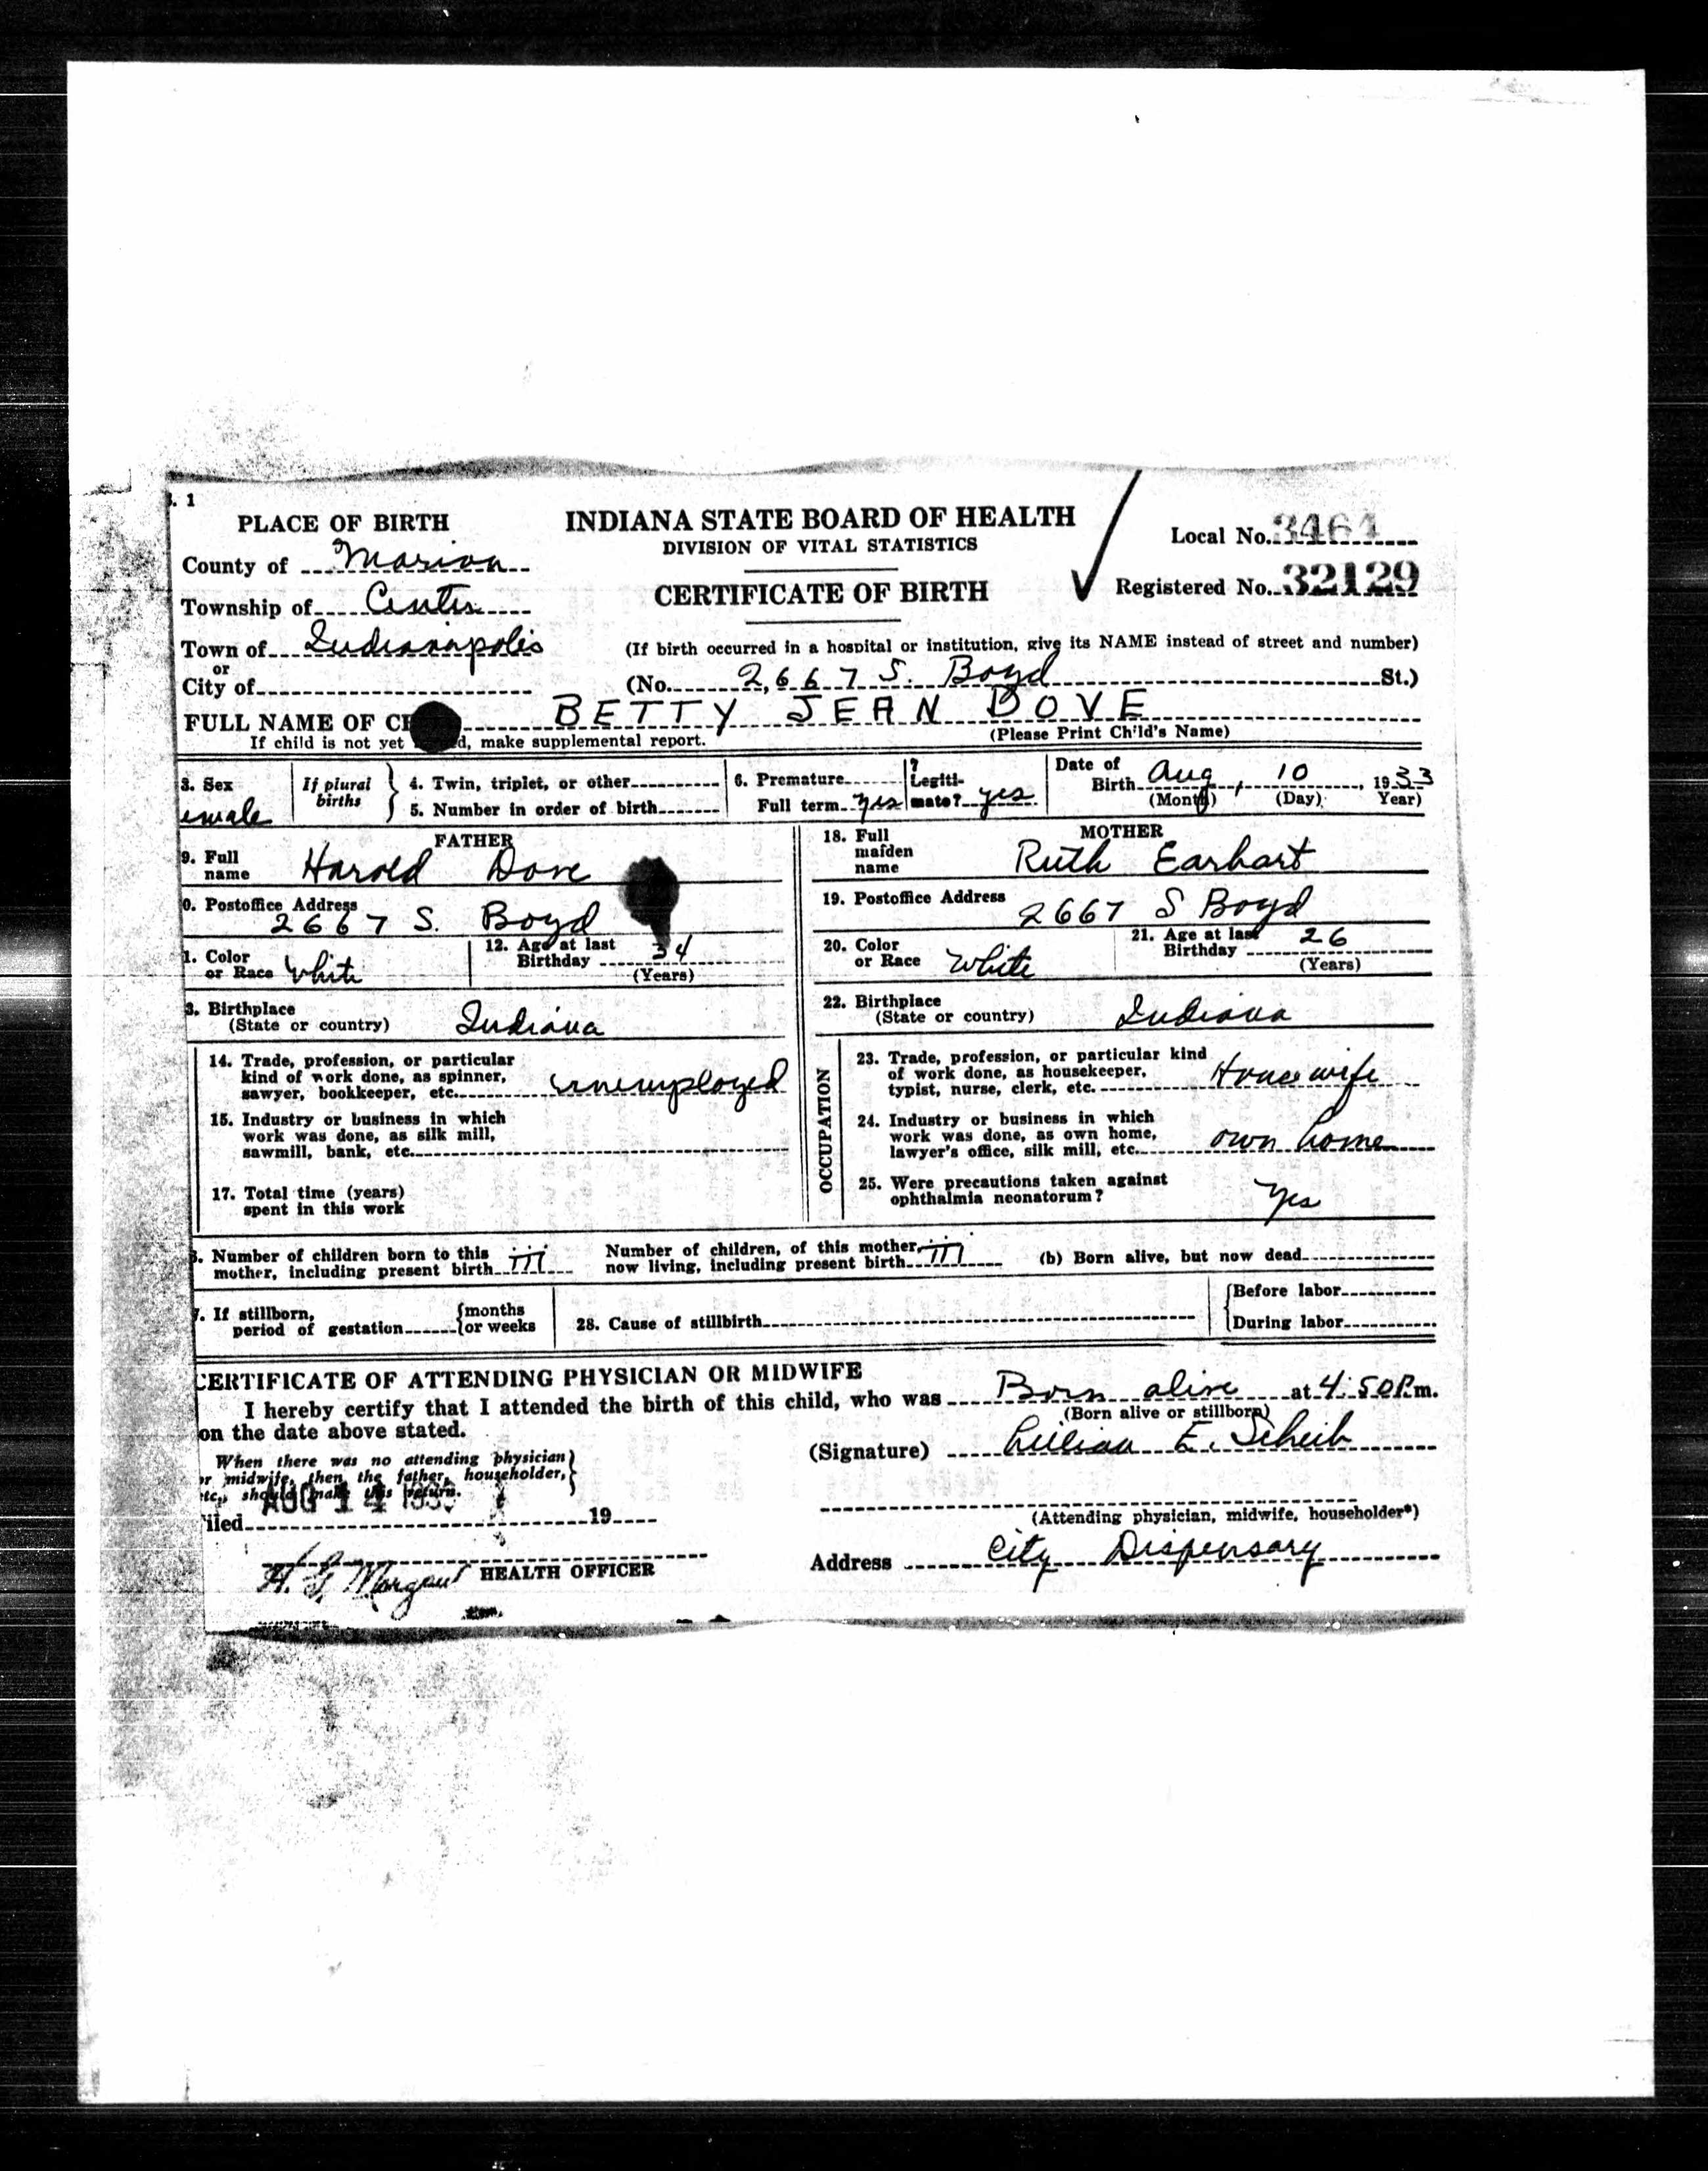 . 1
PLACE OF BIRTH
County of Marion
Township of Center
Town of Indianapolis
or
City of
INDIANA STATE BOARD OF HEALTH
DIVISION OF VITAL STATISTICS
CERTIFICATE OF BIRTH
Local No. 3464
Registered No. 32129
(If birth occurred in a hospital or institution, give its NAME instead of street and number)
(No. 2667 S. Boyd St.)
FULL NAME OF CH BETTY JEAN DOVE
If child is not yet d, make supplemental report. (Please Print Child's Name)
3. Sex
emale
If plural births
4. Twin, triplet, or other
5. Number in order of birth
6. Premature
Full term yes
? Legiti-
mate? yes
Date of
Birth Aug, 10, 1933
(Month) (Day) Year)
FATHER
9. Full
name Harold Dove
0. Postoffice Address
2667 S. Boyd
1. Color
or Race White
12. Age at last
Birthday 34
(Years)
3. Birthplace
(State or country) Indiana
14. Trade, profession, or particular
kind of work done, as spinner,
sawyer, bookkeeper, etc. unemployed
15. Industry or business in which
work was done, as silk mill,
sawmill, bank, etc.
17. Total time (years)
spent in this work
MOTHER
18. Full
maiden
name Ruth Earhart
19. Postoffice Address 2667 S Boyd
20. Color
or Race White
21. Age at last
Birthday 26
(Years)
22. Birthplace
(State or country) Indiana
OCCUPATION
23. Trade, profession, or particular kind
of work done, as housekeeper,
typist, nurse, clerk, etc. Housewife
24. Industry or business in which
work was done, as own home,
lawyer's office, silk mill, etc. own home
25. Were precautions taken against
ophthalmia neonatorum? Yes
. Number of children born to this
mother, including present birth iii
Number of children, of this mother,
now living, including present birth iii
(b) Born alive, but now dead
. If stillborn,
period of gestation {months
or weeks
28. Cause of stillbirth
{Before labor
During labor
CERTIFICATE OF ATTENDING PHYSICIAN OR MIDWIFE
I hereby certify that I attended the birth of this child, who was Born alive at 4:50 P.m.
(Born alive or stillborn)
on the date above stated.
When there was no attending physician
or midwife, then the father, householder,
etc., should make this return.
(Signature) Lillian E. Scheib
AUG 14 1933
iled 19
(Attending physician, midwife, householder*)
Address City Dispensary
H. G. Morgan HEALTH OFFICER